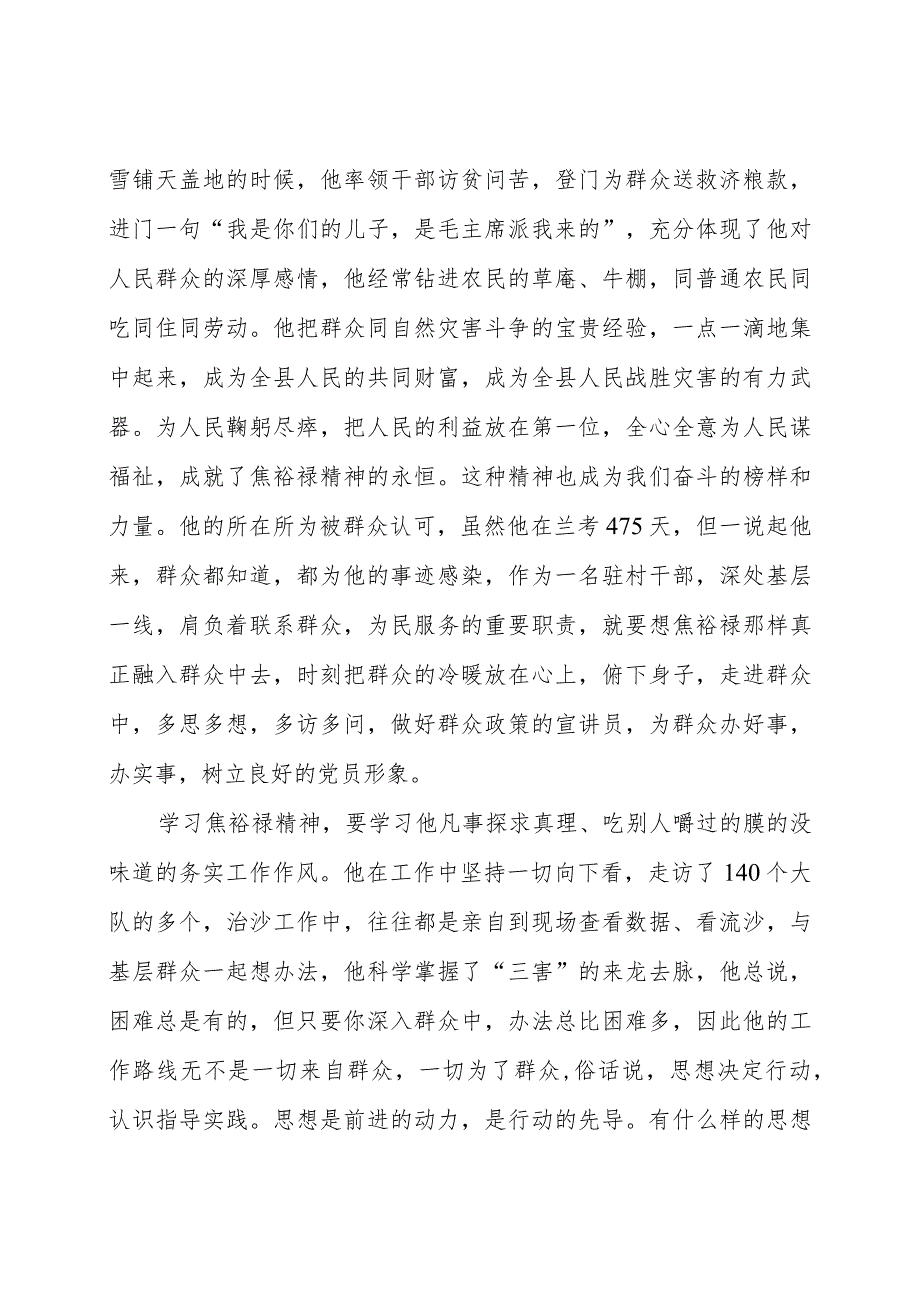 雪铺天盖地的时候，他率领干部访贫问苦，登门为群众送救济粮款，
进门一句“我是你们的儿子，是毛主席派我来的”，充分体现了他对
人民群众的深厚感情，他经常钻进农民的草庵、牛棚，同普通农民同
吃同住同劳动。他把群众同自然灾害斗争的宝贵经验，一点一滴地集
中起来，成为全县人民的共同财富，成为全县人民战胜灾害的有力武
器。为人民鞠躬尽瘁，把人民的利益放在第一位，全心全意为人民谋
福祉，成就了焦裕禄精神的永恒。这种精神也成为我们奋斗的榜样和
力量。他的所在所为被群众认可，虽然他在兰考 475 天，但一说起他
来，群众都知道，都为他的事迹感染，作为一名驻村干部，深处基层
一线，肩负着联系群众，为民服务的重要职责，就要想焦裕禄那样真
正融入群众中去，时刻把群众的冷暖放在心上，俯下身子，走进群众
中，多思多想，多访多问，做好群众政策的宣讲员，为群众办好事，
办实事，树立良好的党员形象。
学习焦裕禄精神，要学习他凡事探求真理、吃别人嚼过的膜的没
味道的务实工作作风。他在工作中坚持一切向下看，走访了 140 个大
队的多个，治沙工作中，往往都是亲自到现场查看数据、看流沙，与
基层群众一起想办法，他科学掌握了“三害”的来龙去脉，他总说，
困难总是有的，但只要你深入群众中，办法总比困难多，因此他的工
作路线无不是一切来自群众，一切为了群众,俗话说，思想决定行动，
认识指导实践。思想是前进的动力，是行动的先导。有什么样的思想